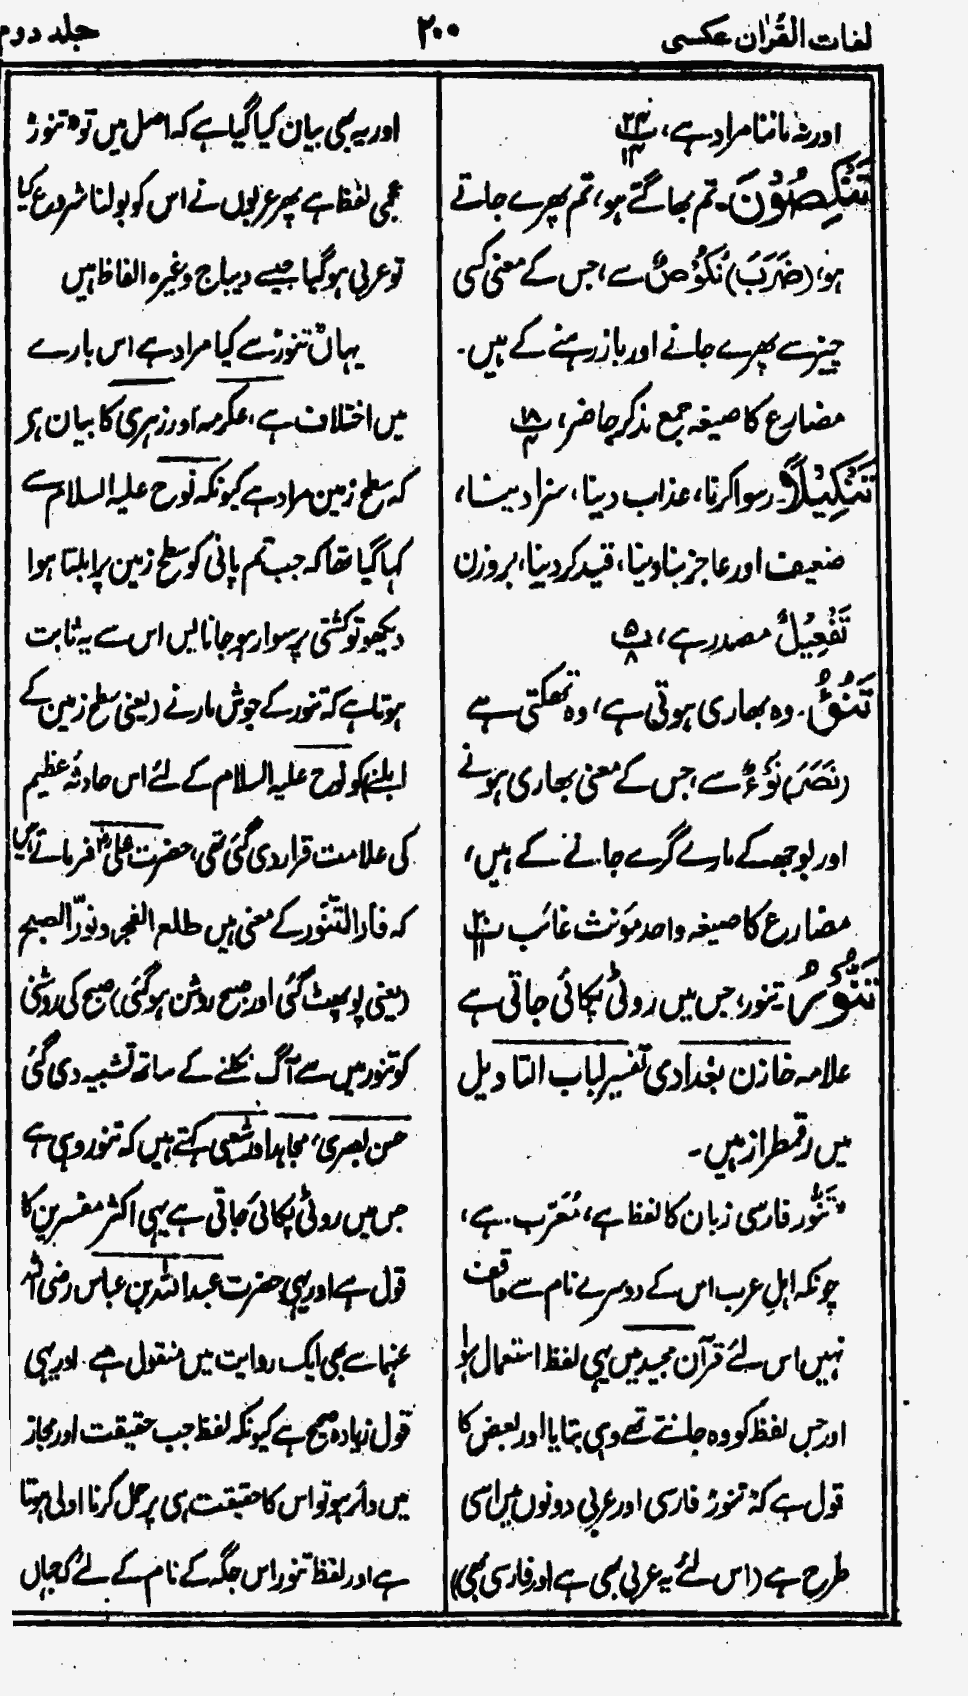 لغات القرآن عکسی
۲۰۰
جلد دوم
اور نہ ماننا مراد ہے، پ ۲۴ / ۱۳
تَنْكِصُوْنَ۔ تم بھاگتے ہو، تم پھرے جاتے
ہو، (ضَرَبَ) نُكُوْصٌ سے، جس کے معنی کسی
چیز سے پھرے جانے اور باز رہنے کے ہیں۔
مضارع کا صیغہ جمع مذکر حاضر، پ ۱۸ / ۴
تَنْكِيْلًا۔ رسوا کرنا، عذاب دینا، سزا دینا،
ضعیف اور عاجز بنا دینا، قید کر دینا، بروزن
تَفْعِيْلٌ مصدر ہے، پ ۵ / ۸
تَنُوْٓءُ۔ وہ بھاری ہوتی ہے، وہ تھکتی ہے
(نَصَرَ) نَوْءٌ سے، جس کے معنی بھاری ہونے
اور بوجھ کے مارے گرے جانے کے ہیں،
مضارع کا صیغہ واحد مؤنث غائب پ ۲۰ / ۱۱
تَنُّوْرُ۔ تنور، جس میں روٹی پکائی جاتی ہے
علامہ خازن بغدادی تفسیر لباب التاویل
میں رقمطراز ہیں۔
"تَنُّور فارسی زبان کا لفظ ہے، مُعَرّب ہے،
چونکہ اہلِ عرب اس کے دوسرے نام سے واقف
نہیں اس لئے قرآن مجید میں یہی لفظ استعمال ہوا
اور جس لفظ کو وہ جانتے تھے وہی بتایا اور بعض کا
قول ہے کہ تنور فارسی اور عربی دونوں میں اسی
طرح ہے (اس لئے یہ عربی بھی ہے اور فارسی بھی)
اور یہ بھی بیان کیا گیا ہے کہ اصل میں تو "تنور"
عجمی لفظ ہے پھر عربوں نے اس کو بولنا شروع کیا
تو عربی ہو گیا جیسے دیباج وغیرہ الفاظ ہیں
یہاں تنور سے کیا مراد ہے اس بارے
میں اختلاف ہے، عکرمہ اور زہری کا بیان ہے
کہ سطح زمین مراد ہے کیونکہ نوح علیہ السلام سے
کہا گیا تھا کہ جب تم پانی کو سطح زمین پر ابلتا ہوا
دیکھو تو کشتی پر سوار ہو جانا پس اس سے یہ ثابت
ہوتا ہے کہ تنور کے جوش مارنے (یعنی سطح زمین کے
ابلنے) کو نوح علیہ السلام کے لئے اس حادثہ عظیم
کی علامت قرار دی گئی تھی، حضرت علیؓ فرماتے ہیں
کہ فار التنور کے معنی ہیں طلع الفجر ونوّر الصبح
(یعنی پو پھٹ گئی اور صبح روشن ہو گئی) صبح کی روشنی
کو تنور میں سے آگ نکلنے کے ساتھ تشبیہ دی گئی
حسن بصری، مجاہد اور شعبی کہتے ہیں کہ تنور وہی ہے
جس میں روٹی پکائی جاتی ہے یہی اکثر مفسرین کا
قول ہے اور یہی حضرت عبداللہ بن عباس رضی اللہ
عنہما سے بھی ایک روایت میں منقول ہے۔ اور یہی
قول زیادہ صحیح ہے کیونکہ لفظ جب حقیقت اور مجاز
میں دائر ہو تو اس کا حقیقت ہی پر حمل کرنا اولی ہوتا
ہے اور لفظ تنور اس جگہ کے نام کے لئے کہ جہاں